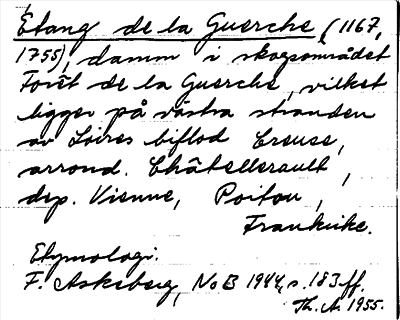 Etang de la Guerche (1167,
1755), damm i skogsområdet
Forêt de la Guerche, vilket
ligger på västra stranden
av Loires biflod Creuse,
arrond. Châtellerault,
dep. Vienne, Poitou,
Frankrike.
Etymologi.
F. Askeberg, NoB 1944, s. 183 ff.
Th. A. 1955.